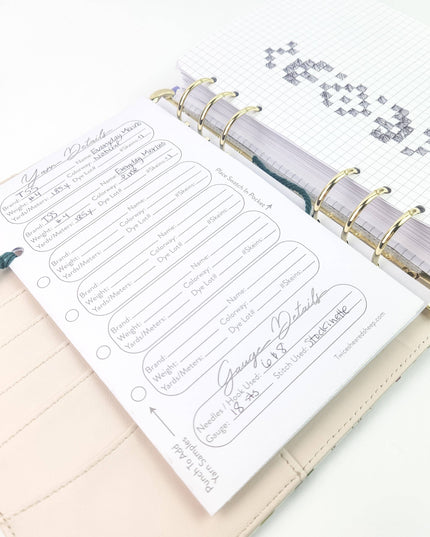 Yarn Details
Brand: TSS Name: Everyday Merino
Weight: #4 Colorway: Natural
Yards/Meters: 185y Dye Lot#: #Skeins:
Brand: TSS Name: Everyday Merino
Weight: #4 Colorway: Pink
Yards/Meters: 185y Dye Lot#: #Skeins:
Brand: Name:
Weight: Colorway:
Yards/Meters: Dye Lot#: #Skeins:
Brand: Name:
Weight: Colorway:
Yards/Meters: Dye Lot#: #Skeins:
Brand: Name:
Weight: Colorway:
Yards/Meters: Dye Lot#: #Skeins:
Brand: Name:
Weight: Colorway:
Yards/Meters: Dye Lot#: #Skeins:
Place Swatch In Pocket
Gauge Details
Needles / Hook Used: 6 & 8
Gauge: 18 sts Stitch Used: Stockinette
Twicesheardsheep.com
Punch To Add
Yarn Samples